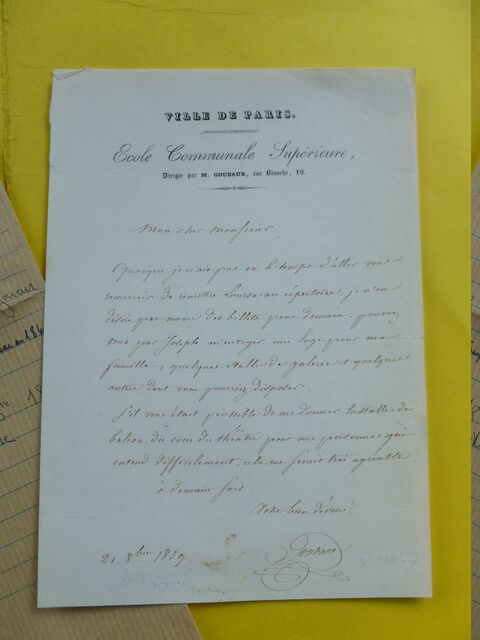 VILLE DE PARIS.
Ecole Communale Supérieure,
Dirigée par M. GOUBAUX, rue Blanche, 19.
Mon cher Monsieur
Quoique je n'aie pas eu le temps d'aller vous
remercier de remettre Louise au répertoire, je n'en
désire pas moins des billets pour demain. pouvez
vous par Joseph m'envoyer une loge pour ma
famille, quelques stalles de galerie et quelques
autres dont vous pourriez disposer.
S'il vous était possible de me donner la stalle de
balcon du coin du théâtre pour une personne qui
entend difficilement, cela me serait très agréable.
à demain soir
Votre bien dévoué
Goubaux
21. 8bre 1839.